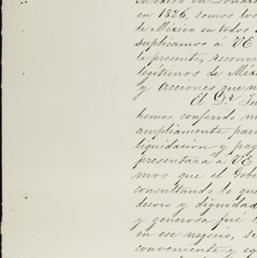 México en Londres
en 1826, somos los
de México en todos
suplicamos a VE
la presente, recono
legítimos de Méx
y acciones que n
El Dr. Ju
hemos conferido n
ampliamente par
liquidacion y pag
presentará a VE
mos que el Gobi
consultando lo que
decoro y dignidad
y generosa fué
en ese negocio, se
conveniente y eq